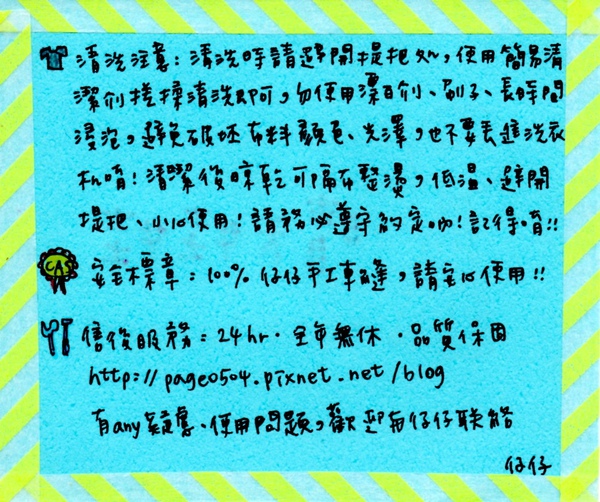 清洗注意：清洗時請避開提把處，使用簡易清
潔劑搓揉清洗即可，勿使用漂白劑、刷子、長時間
浸泡，避免破坏布料顏色、光澤，也不要丟進洗衣
机唷！清潔後晾乾可隔布整燙，低溫、避開
提把、小心使用！請務必遵守約定呦！記得唷!!
CAS 安全標章：100% 仔仔手工車縫，請安心使用!!
售後服務：24hr．全年無休．品質保固
http://page0504.pixnet.net/blog
有any疑慮、使用問題，歡迎与仔仔联絡
仔仔